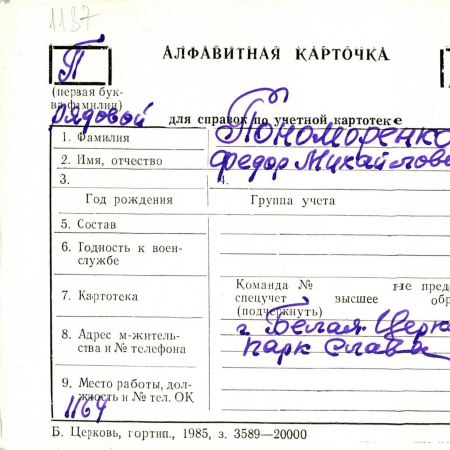 1187
П
АЛФАВИТНАЯ КАРТОЧКА
(первая бук-
ва фамилии)
Рядовой
для справок по учетной картотеке
1. Фамилия Пономоренко
2. Имя, отчество Федор Михайлови
3. 4.
Год рождения Группа учета
5. Состав
6. Годность к воен-
службе
7. Картотека
Команда № не пред
спецучет высшее об
(подчеркнуть)
8. Адрес м-житель-
ства и № телефона
г. Белая Церк
парк Слава
9. Место работы, дол-
жность и № тел. ОК
1164
Б. Церковь, гортип., 1985, з. 3589—20000